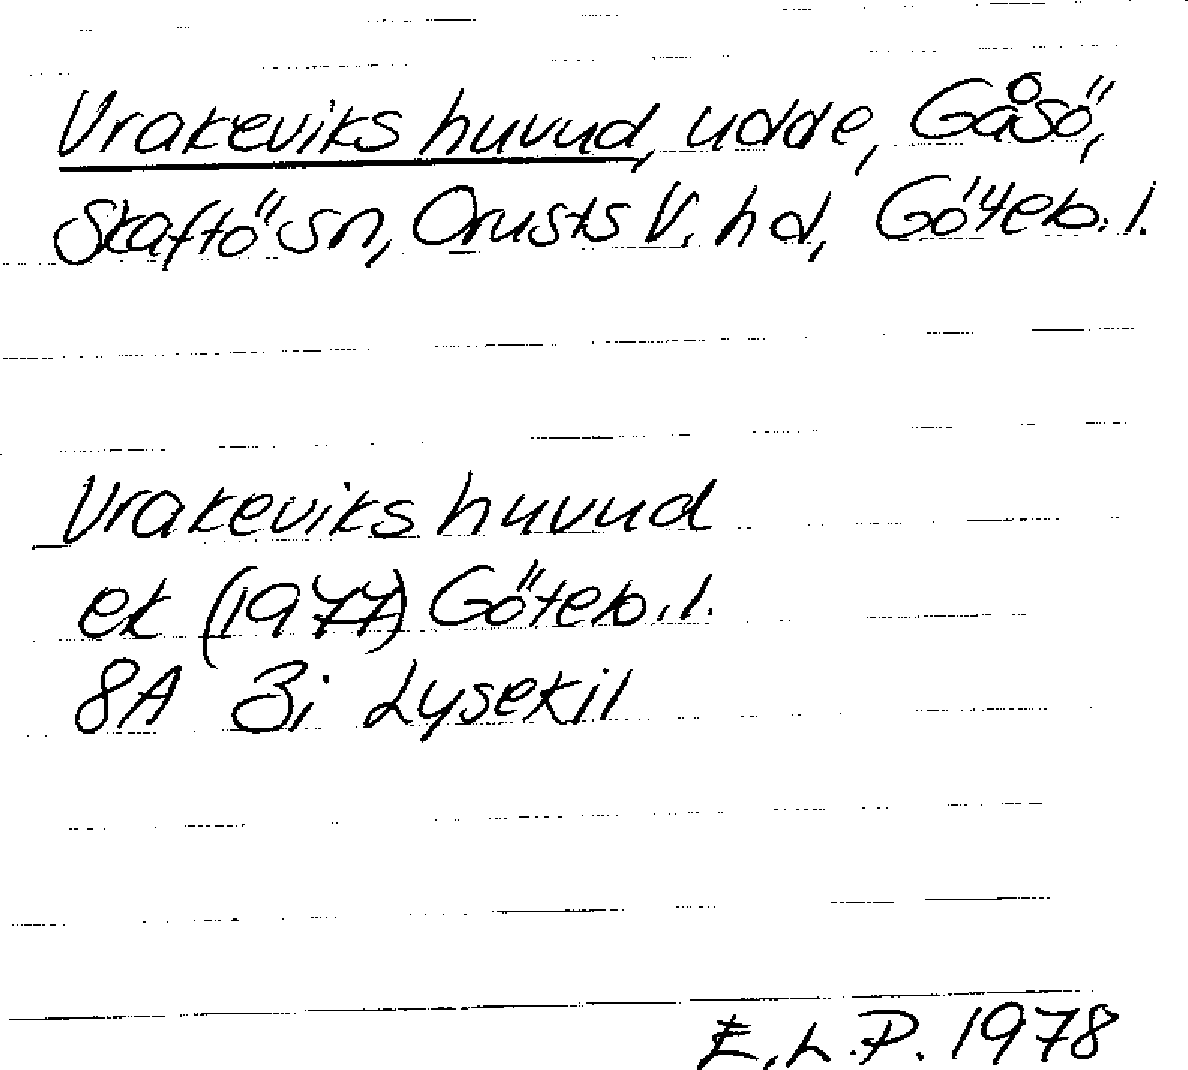 Vrakeviks huvud, udde, Gåsö,
Skaftö sn, Orusts V. hd, Göteb. l.
Vrakeviks huvud
ek (1977) Göteb. l.
8A 3i Lysekil
E.L.P. 1978